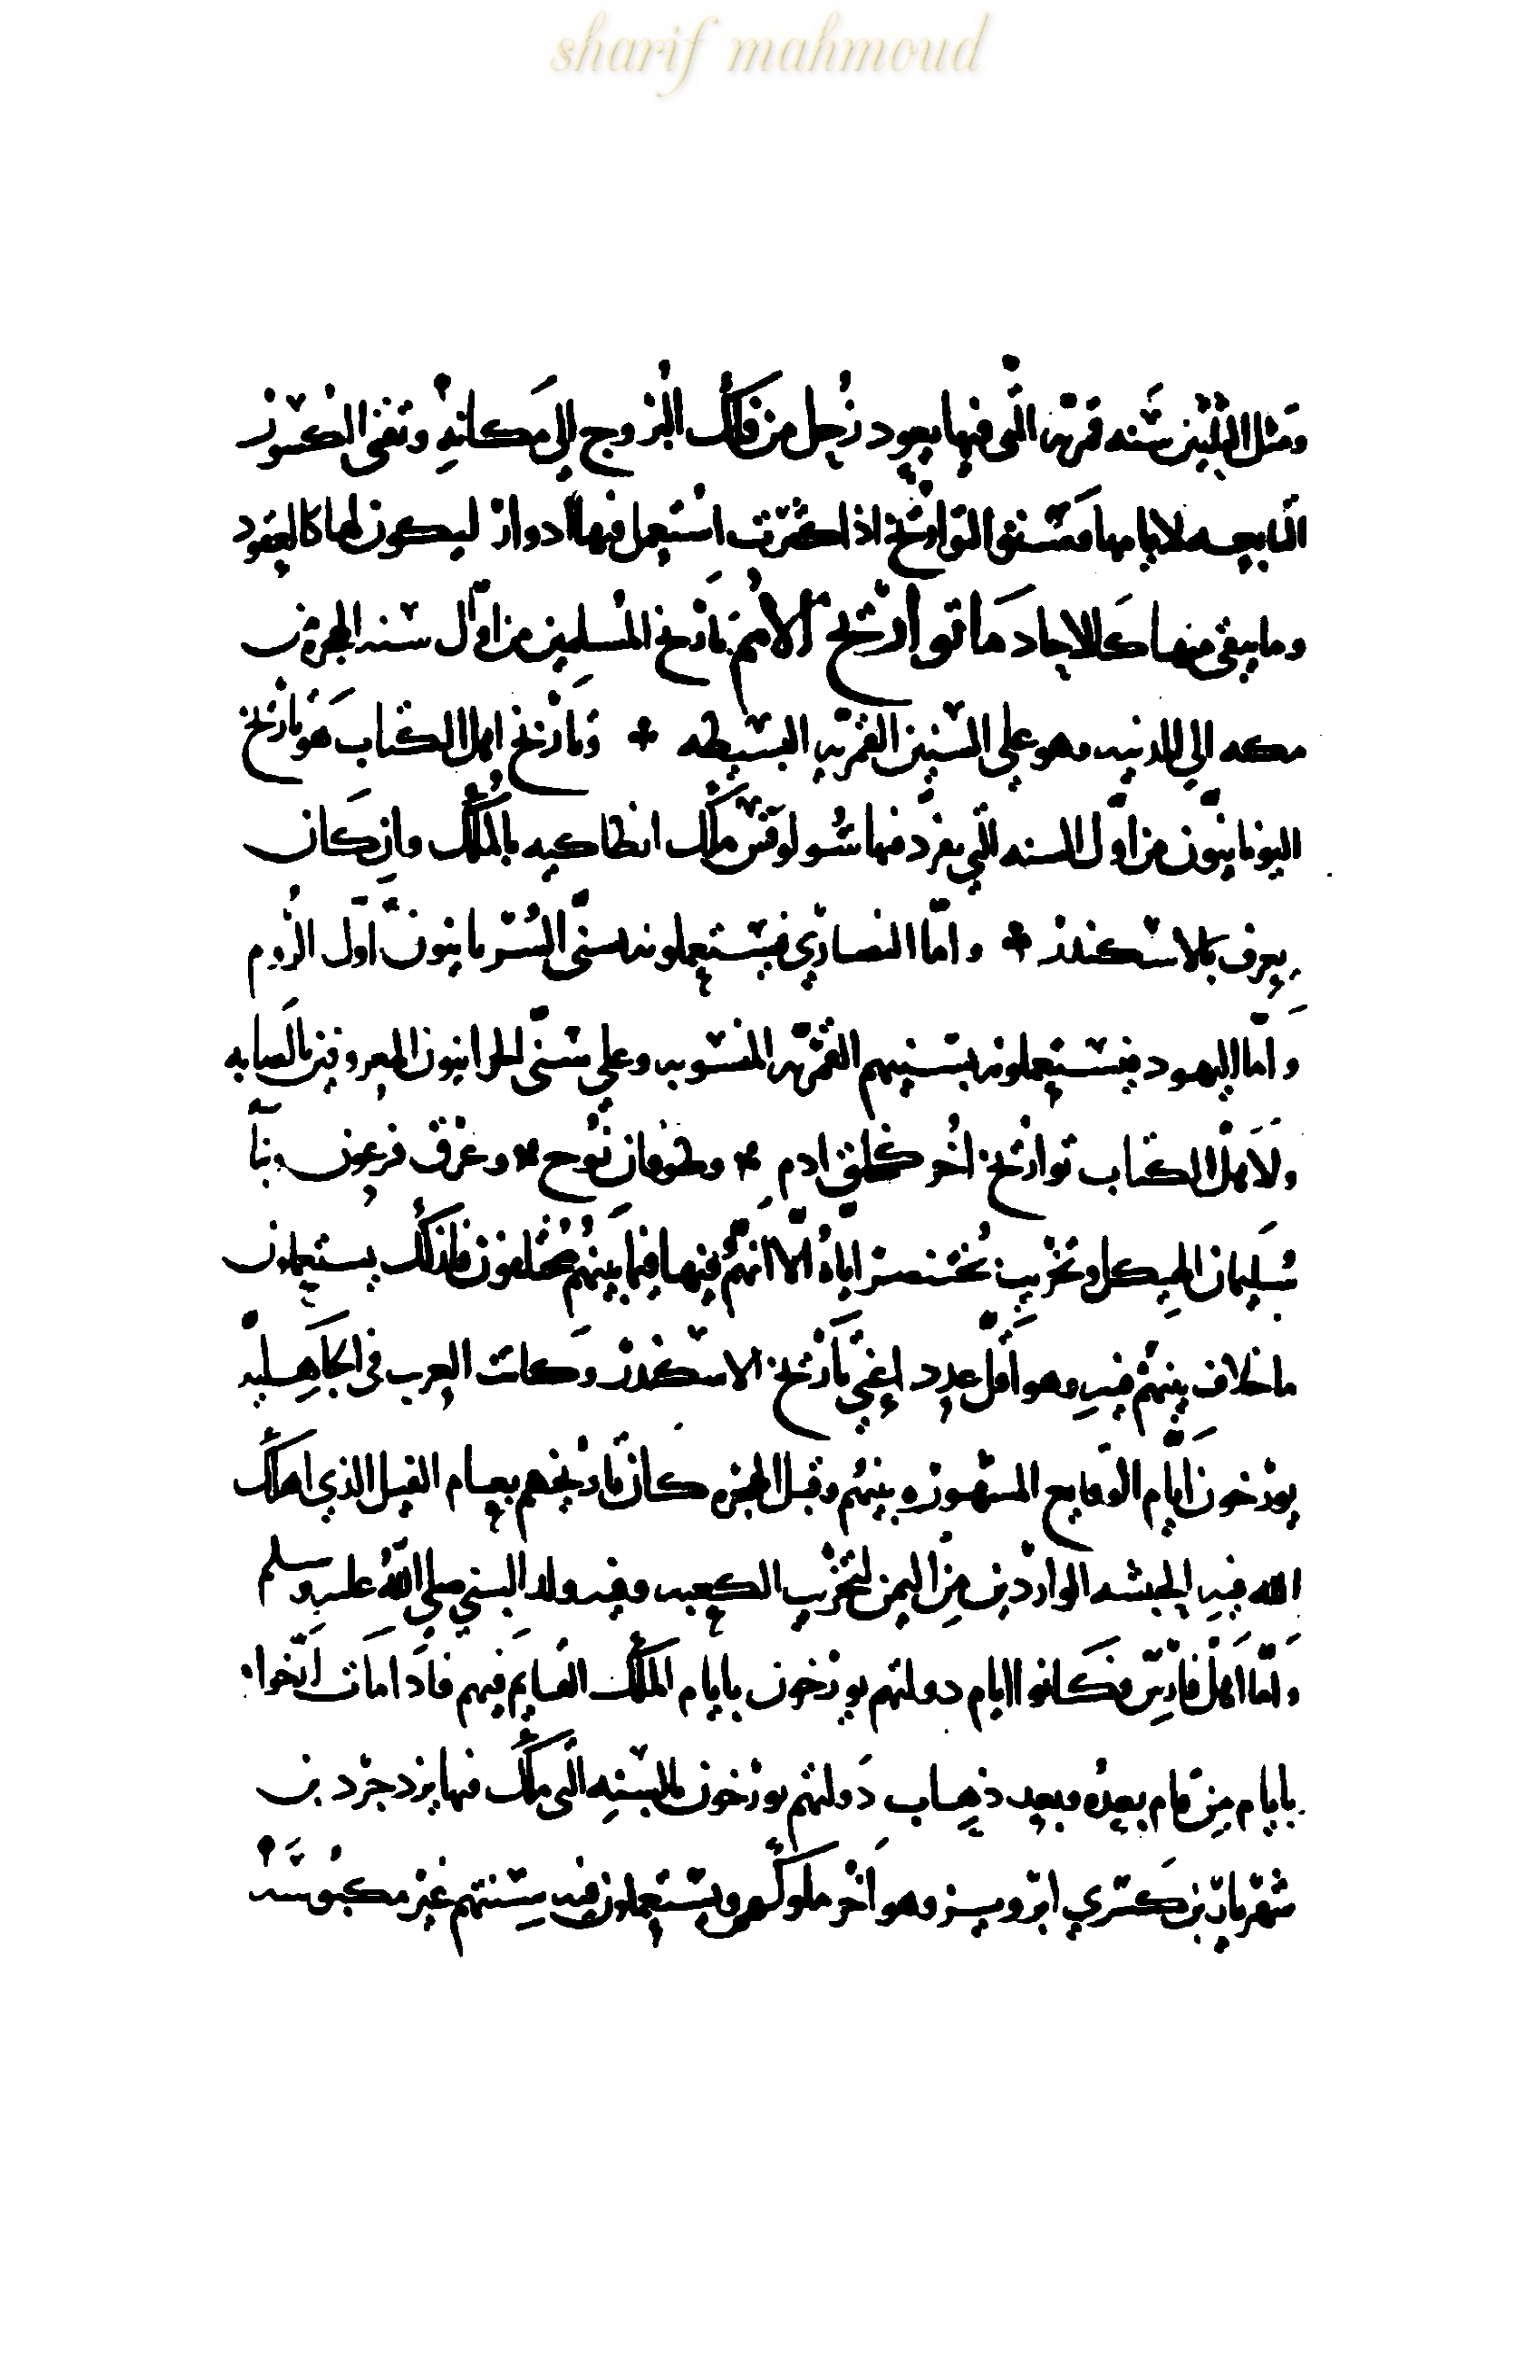 sharif mahmoud
ومثل الثلثين سنه قمريه التى فيها يعود زحل من فلك البروج الى مكانه وتفنى الكسور
التابعه لايامها فسنوا التواريخ اذا كثرت استعمل فيها ادوار ليكون لها كالعقود
وما يبقى منها كالاحاد ما تواريخ الامم تاريخ المسلمين من اول سنه الهجره من
مكه الي المدنيه وهو علي السنين القمريه البسيطه وتاريخ اهل الكتاب هو تاريخ
اليونانيون من اول السنه التي تفرد فيها سولوقس ملك انطاكيه بالملك وان كان
يعرف بالاسكندر واما النصارى فيستعملونه بسنى السريانيون اول الروم
واما اليهود فيستعملونه بسنيهم القمريه المنسوبه وعلي سنى الحرانيون المعروفين بالصابه
ولاهل الكتاب تواريخ اخر كخلق ادم وطوفان نوح وغرق فرعون بنا
سليمان الهيكل وتخريب بختنصر اياه الا انهم فيها فيما بينهم مختلفون فلذلك يستعملون
ما خلاف بينهم فيه وهو اقل عدد اعني تاريخ الاسكندر وكانت العرب فى الجاهليه
يورخون بايام الوقايع المشهوره بينهم وقبل الهجره كان تاريخهم بعام الفيل الذي اهلك
الله فيه الحبشه الواردين من اليمن لتخريب الكعبه وفيه ولد النبي صلي الله عليه وسلم
واما اهل فارس فكانوا ايام دولتهم يورخون بايام الملك القايم فيهم فاذا مات ارخوا
بايام من قام بعده وبعد ذهاب دولتهم يورخون بالسنه التى ملك فيها يزدجرد بن
شهريار بن كسري ابرويز وهو اخر ملوكهم ويستعملون فيه سنتهم غير مكبوسه